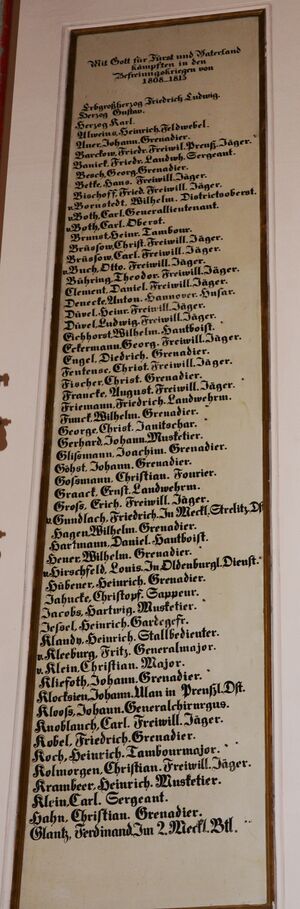 Mit Gott für Fürst und Vaterland
kämpften in den
Befreiungskriegen von
1808-1815
Erbgroßherzog Friedrich Ludwig.
Herzog Gustav.
Herzog Karl.
Alweins, Heinrich. Feldwebel.
Auer, Johann. Grenadier.
Barckow, Friedr. Freiwil. Preuß. Jäger.
Banick, Friedr. Landwh. Sergeant.
Besch, Georg. Grenadier.
Betke, Hans. Freiwill. Jäger.
Bischoff, Fried. Freiwill. Jäger.
v. Bornstedt, Wilhelm. Districtsoberst.
v. Both, Carl. Generallieutenant.
v. Both, Carl. Oberst.
Brunst, Heinr. Tambour.
Brüssow, Christ. Freiwill. Jäger.
Brüssow, Carl. Freiwill. Jäger.
v. Buch, Otto. Freiwill. Jäger.
Bühring, Theodor. Freiwill. Jäger.
Clement, Daniel. Freiwill. Jäger.
Denecke, Anton. Hannover. Husar.
Düvel, Heinr. Freiwill. Jäger.
Düvel, Ludwig. Freiwill. Jäger.
Eichhorst, Wilhelm. Hautboist.
Eckermann, Georg. Freiwill. Jäger.
Engel, Diedrich. Grenadier.
Fentense, Christ. Freiwill. Jäger.
Fischer, Christ. Grenadier.
Francke, August. Freiwill. Jäger.
Friemann, Friedrich. Landwehrm.
Funck, Wilhelm. Grenadier.
George, Christ. Janitschar.
Gerhard, Johann. Musketier.
Glißmann, Joachim. Grenadier.
Göhst, Johann. Grenadier.
Goßmann, Christian. Fourier.
Graack, Ernst. Landwehrm.
Gross, Erich. Freiwill. Jäger.
v. Gundlach, Friedrich. In Meckl. Strelitz. Dst.
Hagen, Wilhelm. Grenadier.
Hartmann, Daniel. Hautboist.
Hener, Wilhelm. Grenadier.
v. Hirschfeld, Louis. In Oldenburgl. Dienst.
Hübener, Heinrich. Grenadier.
Jahncke, Christopf. Sappeur.
Jacobs, Hartwig. Musketier.
Jessel, Heinrich. Gardegefr.
Klandy, Heinrich. Stallbedienter.
v. Kleeburg, Fritz. Generalmajor.
v. Klein, Christian. Major.
Kliefoth, Johann. Grenadier.
Klocksien, Johann. Ulan in Preußl. Dst.
Klooss, Johann. Generalchirurgus.
Knoblauch, Carl. Freiwill. Jäger.
Kobel, Friedrich. Grenadier.
Koch, Heinrich. Tambourmajor.
Kolmorgen, Christian. Freiwill. Jäger.
Krambeer, Heinrich. Musketier.
Klein, Carl. Sergeant.
Hahn, Christian. Grenadier.
Glantz, Ferdinand. Im 2. Meckl. Btl.